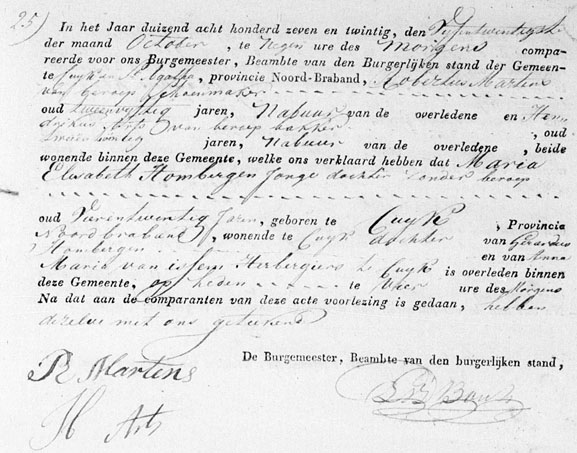 25)
In het Jaar duizend acht honderd zeven en twintig, den Vijfentwintigste
der maand October, te Negen ure des Morgens compa-
reerde voor ons Burgemeester, Beambte van den Burgerlijken stand der Gemeen-
te Cuyk en St. Agatha, provincie Noord-Braband, Robertus Martens
van beroep Schoenmaker
oud tweenvyftig jaren, Nabuur van de overledene en Hen
drikus Arts van beroep bakker, oud
jaren, Nabuur van de overledene, beide
wonende binnen deze Gemeente, welke ons verklaard hebben dat Maria
Elisabeth Hombergen Jonge dochter zonder beroep
oud Vierentwintig Jaren, geboren te Cuyk, Provincie
Noordbraband, wonende te Cuyk dochter van Gerardus
Hombergen en van Anna
Maria van Herbergiers te Cuyk is overleden binnen
deze Gemeente, op heden te Vier ure des Morgens
Na dat aan de comparanten van deze acte voorlezing is gedaan, hebben
dezelve met ons getekend
De Burgemeester, Beambte van den burgerlijken stand,
R Martens
H Arts